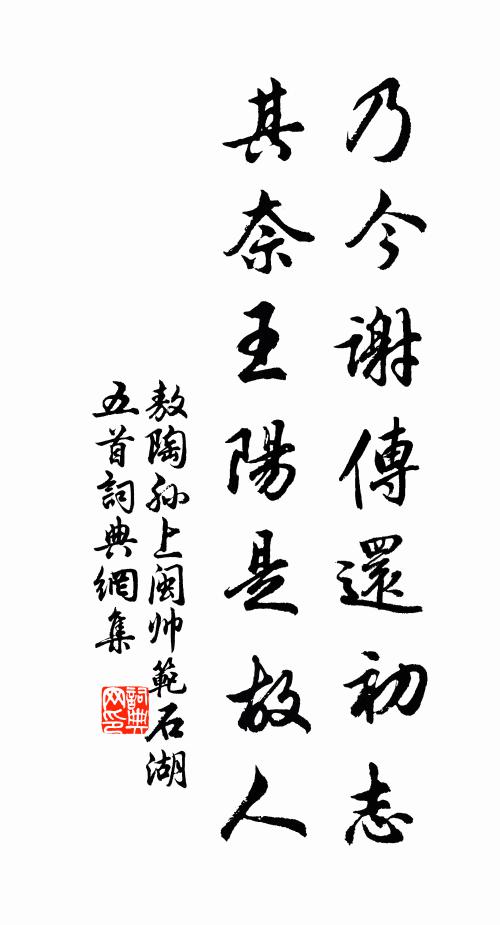 乃今謝傅還初志
其奈王陽是故人
敖陶孙上闽帅範石湖
五首詞典網集
詞典网印